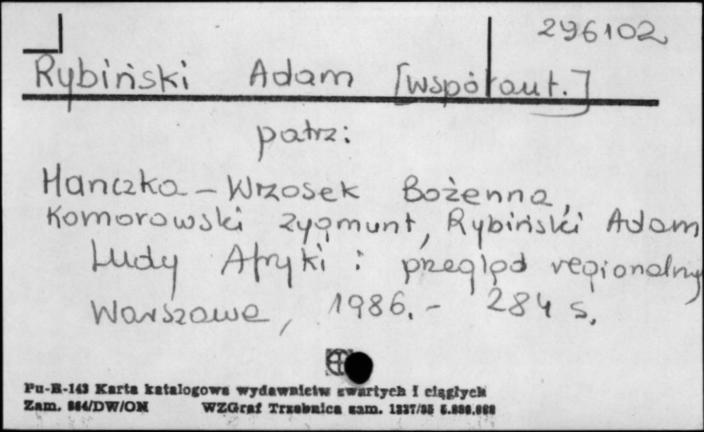 296102
Rybiński Adam [współaut.]
patrz:
Hanczka-Wrzosek Bożenna,
Komorowski Zygmunt, Rybiński Adam
Ludy Afryki : przegląd regionalny
Warszawa, 1986. - 284 s.
Pu-B-143 Karta katalogowa wydawnictw zwartych i ciągłych
Zam. 864/DW/ON WZGraf Trzebnica zam. 1337/85